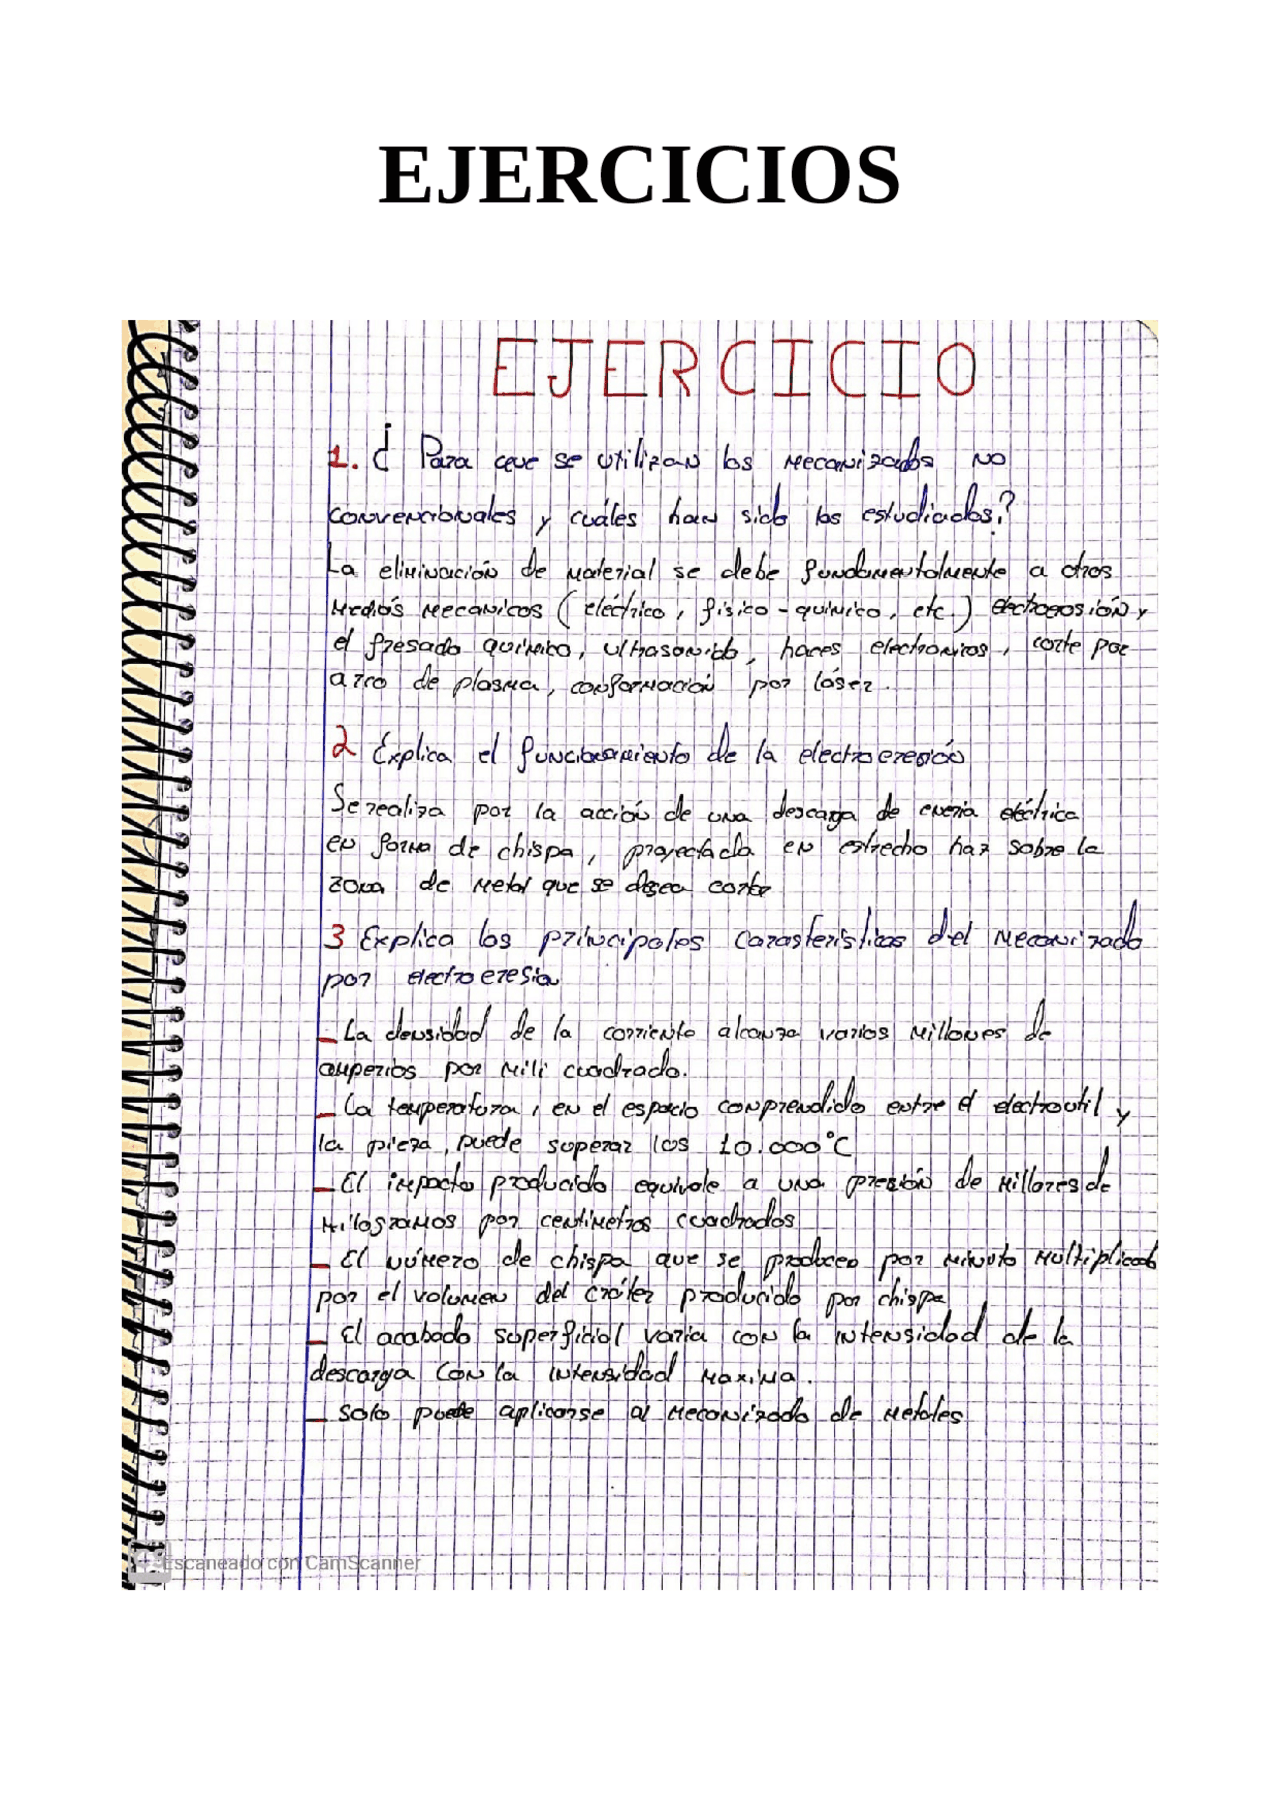 EJERCICIOS
EJERCICIO
1. ¿ Para que se utilizan los mecanizados no
convencionales y cuáles han sido los estudiados?
La eliminación de material se debe fundamentalmente a otros
medios mecanicos ( eléctrico, físico-químico, etc.) electroerosión y
el fresado químico, ultrasonido, haces electronicos, corte por
arco de plasma, conformación por láser.
2 Explica el funcionamiento de la electroerosión
Se realiza por la acción de una descarga de eneria eléctrica
en forma de chispa, proyectada en estrecho haz sobre la
zona de metal que se desea cortar
3 Explica las principales carasteristicas del mecanizado
por electroeresia
- La densidad de la corriente alcanza varios millones de
amperios por mili cuadrado.
- La temperatura, en el espacio comprendido entre el electroutil y
la pieza, puede superar los 10.000°C
- El impacto producido equivale a una presión de millares de
kilogramos por centimetros cuadrados
- El número de chispa que se producen por minuto multiplicado
por el volumen del cráter producido por chispa
- El acabado superficial varia con la intensidad de la
descarga con la intensidad maxima.
- Solo puede aplicarse al mecanizado de metales
Escaneado con CamScanner